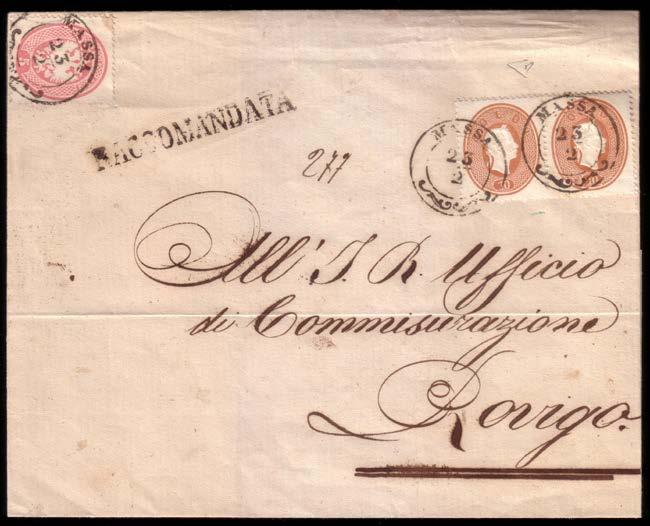 MASSA
23
2
5
RACCOMANDATA
277
MASSA
23
2
10
MASSA
23
2
All' I. R. Ufficio
di Commisurazione
Rovigo.